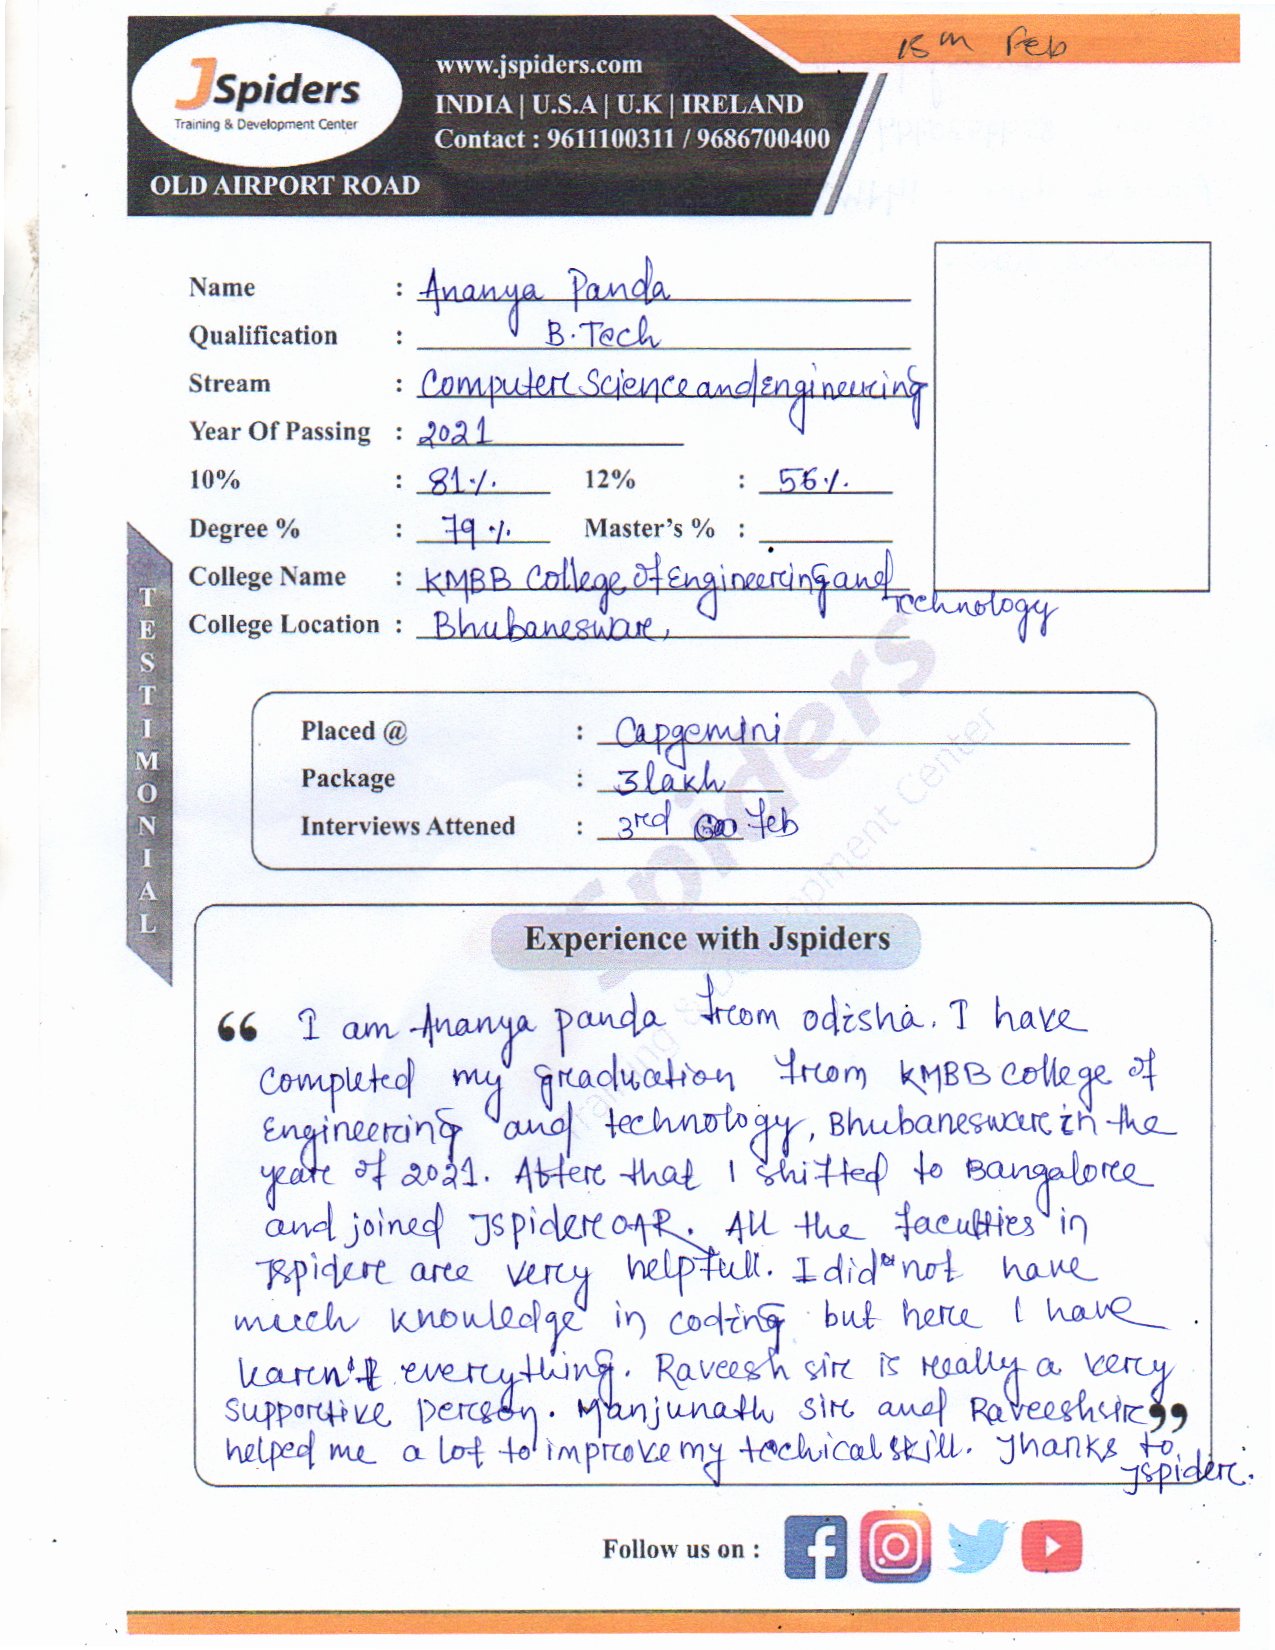 15th Feb
JSpiders
Training & Development Center
OLD AIRPORT ROAD
www.jspiders.com
INDIA | U.S.A | U.K | IRELAND
Contact : 9611100311 / 9686700400
Name : Ananya Panda
Qualification : B.Tech
Stream : Computer Science and Engineering
Year Of Passing : 2021
10% : 81% 12% : 56%
Degree % : 79% Master's % :
College Name : KMBB College of Engineering and Technology
College Location : Bhubaneswar,
TESTIMONIAL
Placed @ : Capgemini
Package : 3 lakh
Interviews Attened : 3rd Feb
Experience with Jspiders
“ I am Ananya panda from odisha. I have
completed my graduation from KMBB College of
Engineering and technology, Bhubaneswar in the
year of 2021. After that I shifted to Bangalore
and joined Jspider OAR. All the faculties in
Jspider are very helpfull. I did not have
much knowledge in coding but here I have
learn't everything. Raveesh sir is really a very
supportive person. Manjunath sir and Raveesh sir ”
helped me a lot to improve my techical skill. Thanks to
Jspider.
Follow us on :